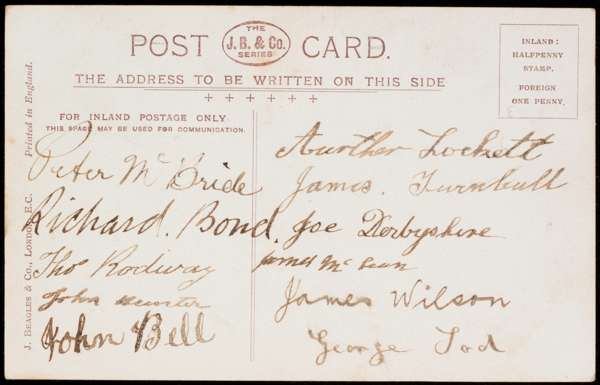 POST CARD.
THE
J. B. & Co.
SERIES
THE ADDRESS TO BE WRITTEN ON THIS SIDE
INLAND:
HALFPENNY
STAMP.
FOREIGN
ONE PENNY.
FOR INLAND POSTAGE ONLY
THIS SPACE MAY BE USED FOR COMMUNICATION.
J. BEAGLES & CO., LONDON, E.C.
Printed in England.
Peter Mc Bride
Richard. Bond.
Thos Rodway
John Hunter
John Bell
Aurther Lockett
James. Turnbull
Joe Derbyshire
James Mc Lean
James Wilson
George Tod